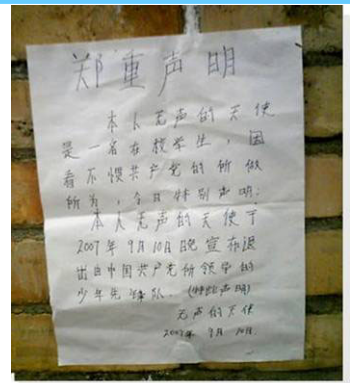 郑重声明
本人无声的天使
是一名在校学生，因
看不惯共产党的所做
所为，今日特别声明：
本人无声的天使于
2007年9月10日晚宣布退
出由中国共产党所领导的
少年先锋队．(特此声明)
无声的天使
2007年9月10日.